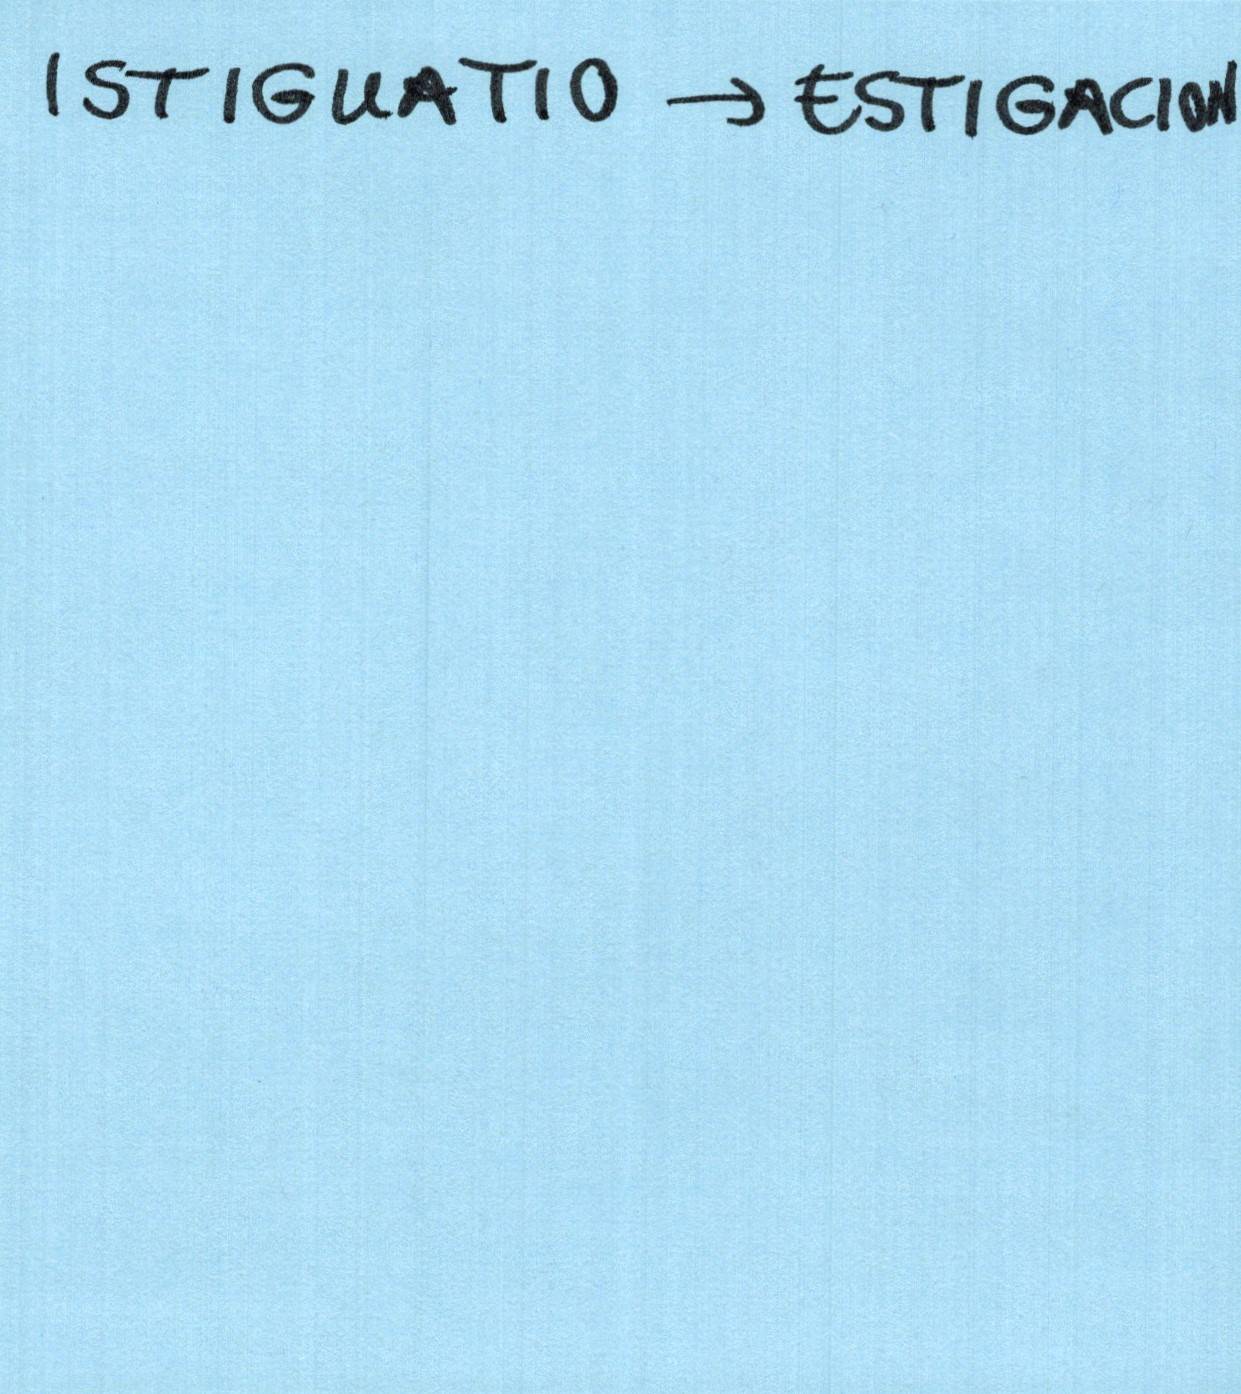 ISTIGUATIO → ESTIGACION